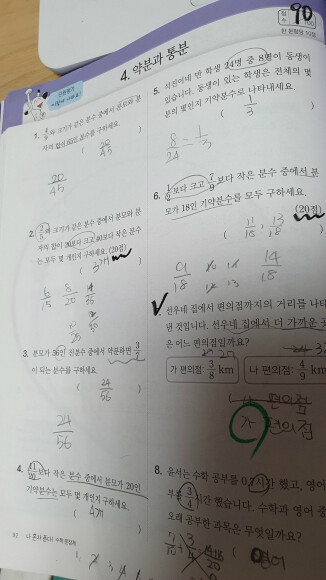 90
점수
/100
한 문항당 10점
단원평가
4. 약분과 통분
1.
와 크기가 같은 분수 중에서 분모와 분
자의 합이 65인 분수를 구하세요.
( 20/45 )
20/45
2.
와 크기가 같은 분수 중에서 분모와 분
자의 합이 20보다 크고 60보다 작은 분수
는 모두 몇 개인지 구하세요. (20점)
( 3개 )
6/15 8/20
3. 분모가 56인 진분수 중에서 약분하면 3/7
이 되는 분수를 구하세요.
( 24/56 )
24/56
4. 11/20보다 작은 분수 중에서 분모가 20인
기약분수는 모두 몇 개인지 구하세요.
( 4개 )
92 나 혼자 푼다! 수학 문장제
5. 서진이네 반 학생 24명 중 8명이 동생이
있습니다. 동생이 있는 학생은 전체의 몇
분의 몇인지 기약분수로 나타내세요.
( 1/3 )
8/24 = 1/3
6. 1/2보다 크고 7/9보다 작은 분수 중에서 분
모가 18인 기약분수를 모두 구하세요.
(20점)
( 11/18, 13/18 )
9/18 14/18
선우네 집에서 편의점까지의 거리를 나타
낸 것입니다. 선우네 집에서 더 가까운 곳
은 어느 편의점일까요?
가 편의점: 3/8 km
나 편의점: 4/9 km
편의점
가 편의점
8. 윤서는 수학 공부를 0.7시간 했고, 영어
부를 3/4시간 했습니다. 수학과 영어 중
오래 공부한 과목은 무엇일까요?
( 영어
7/10